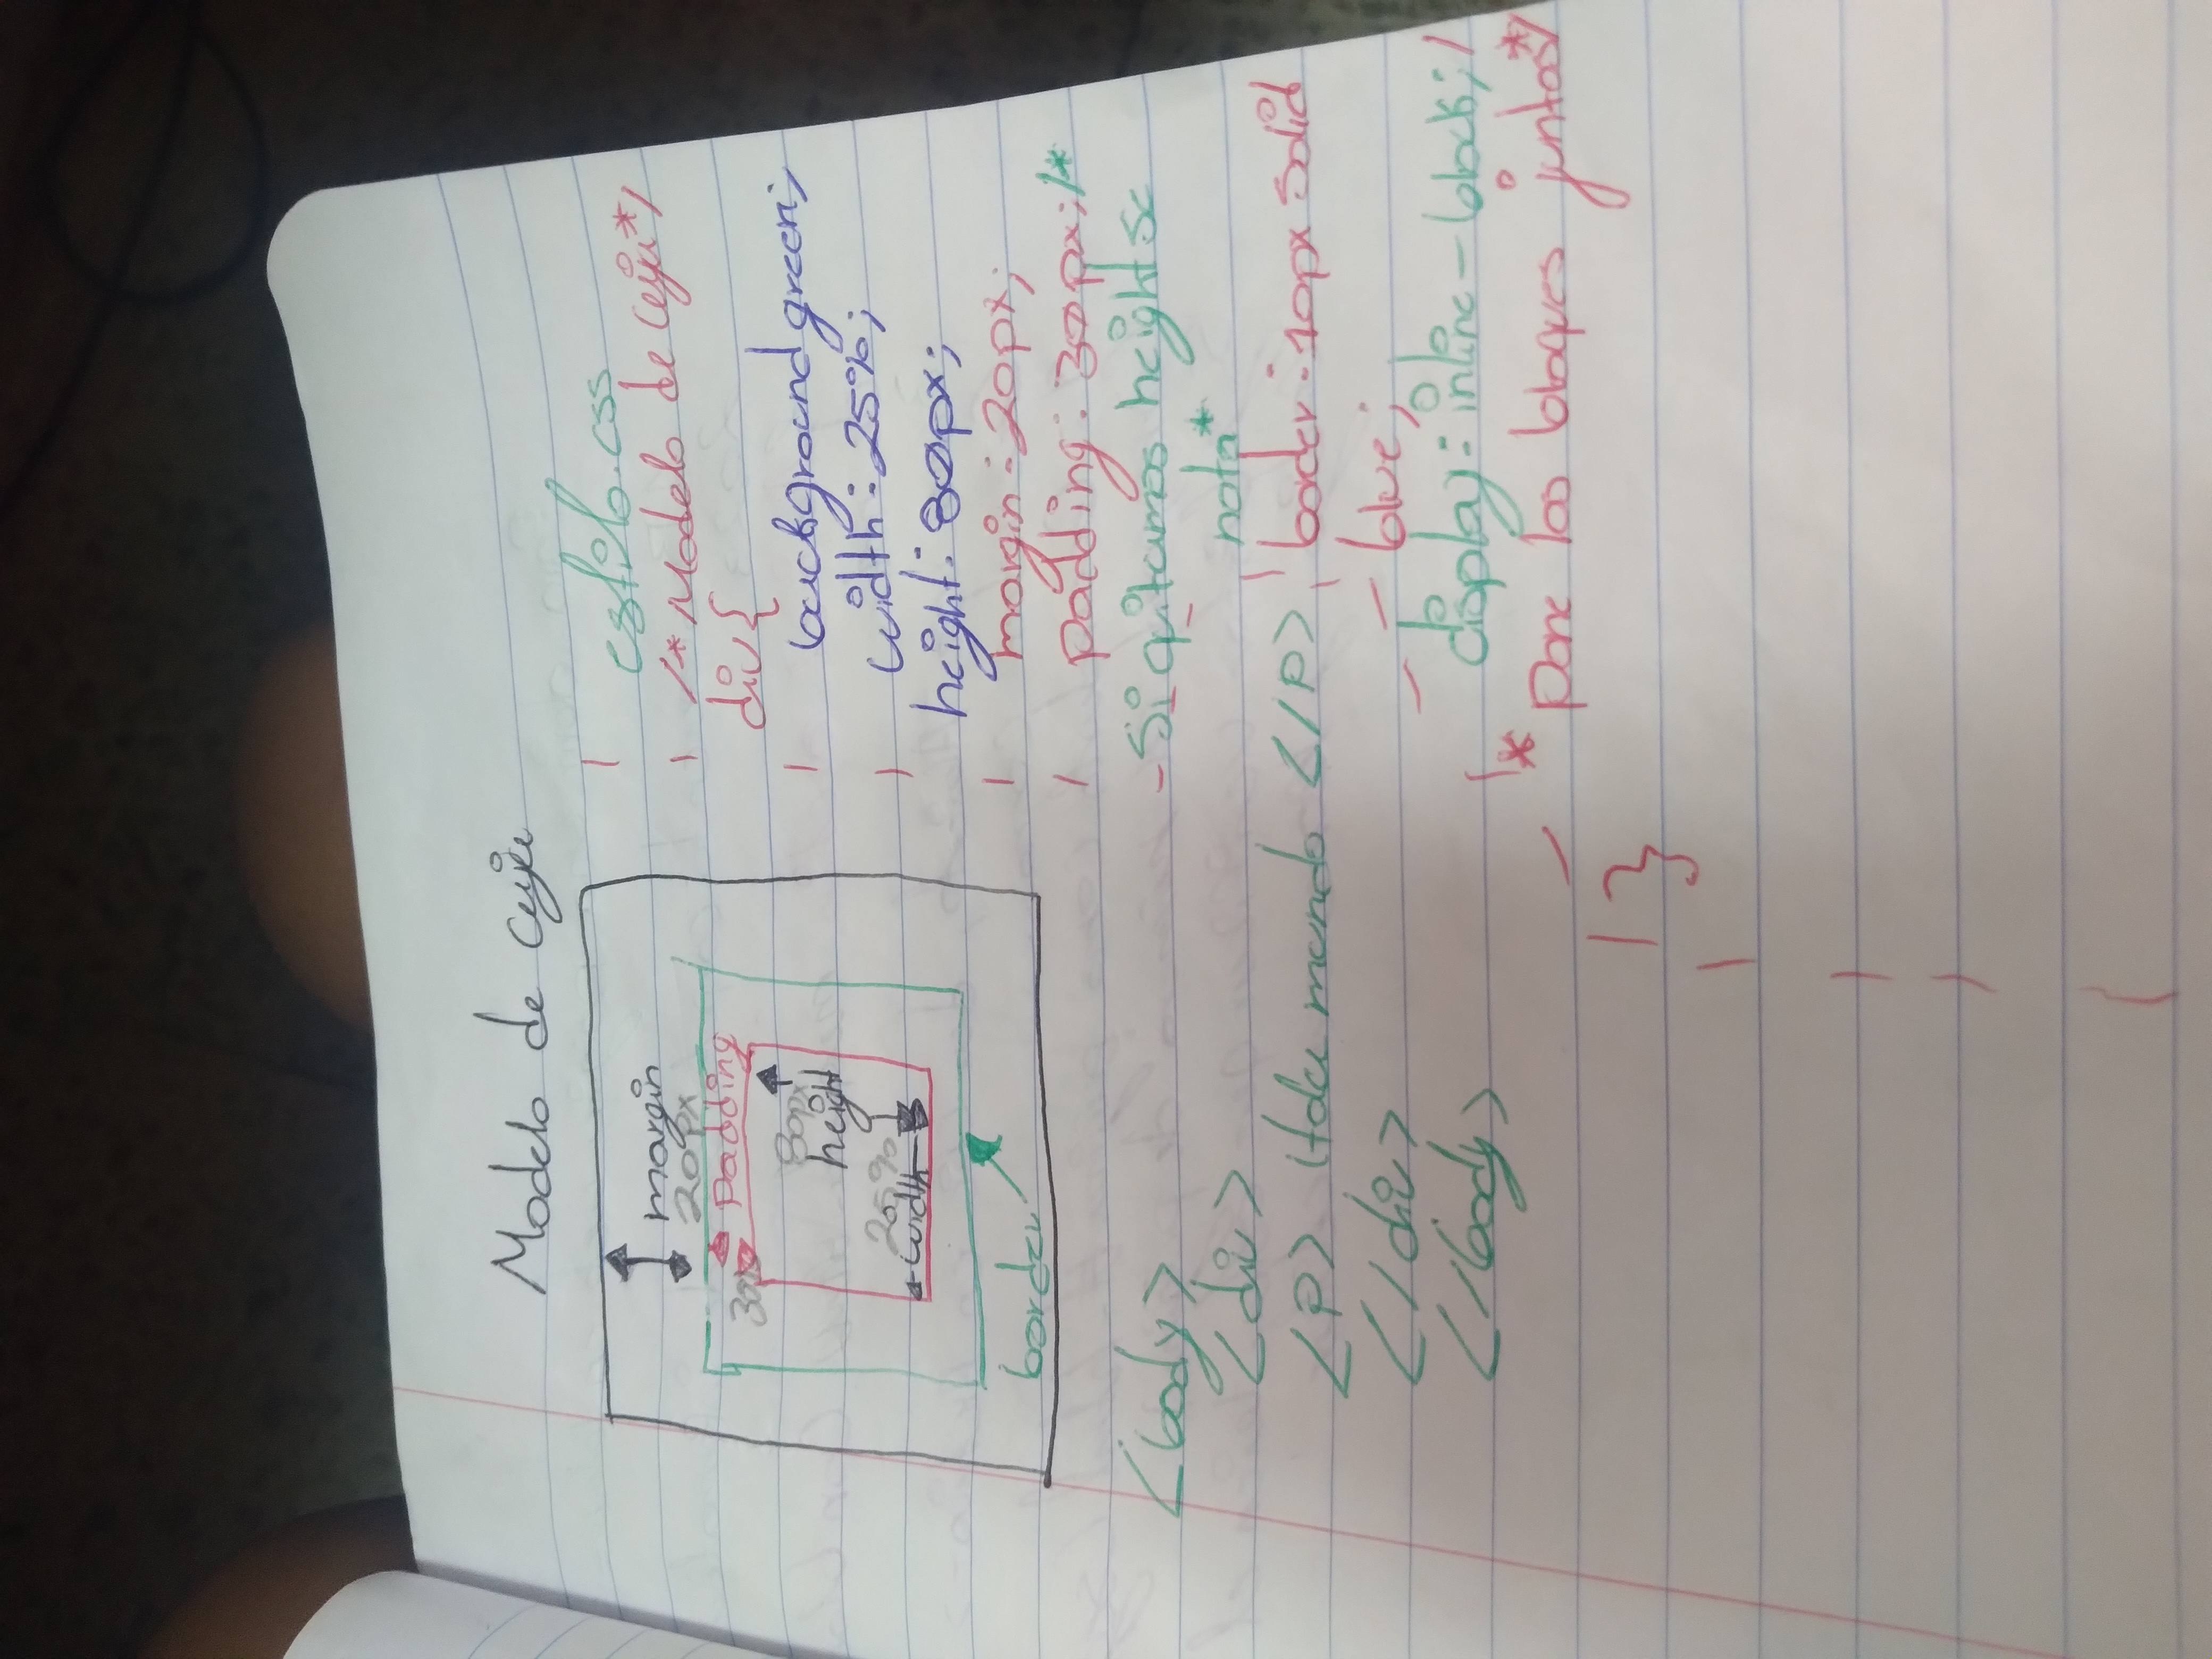 Modelo de Caja
margin
20px
Padding
30px
80px
height
25%
width
border
<body>
<div>
<p> Hola mundo </p>
</div>
</body>
estilo.css
/* Modelo de Caja*/
div{
background green;
width: 25%;
height: 80px;
margin: 20px;
padding: 30px; /*
Si quitamos height se
nota*
border: 10px solid
blue;
display: inline-block; /
* Pone los bloques juntos*/
}